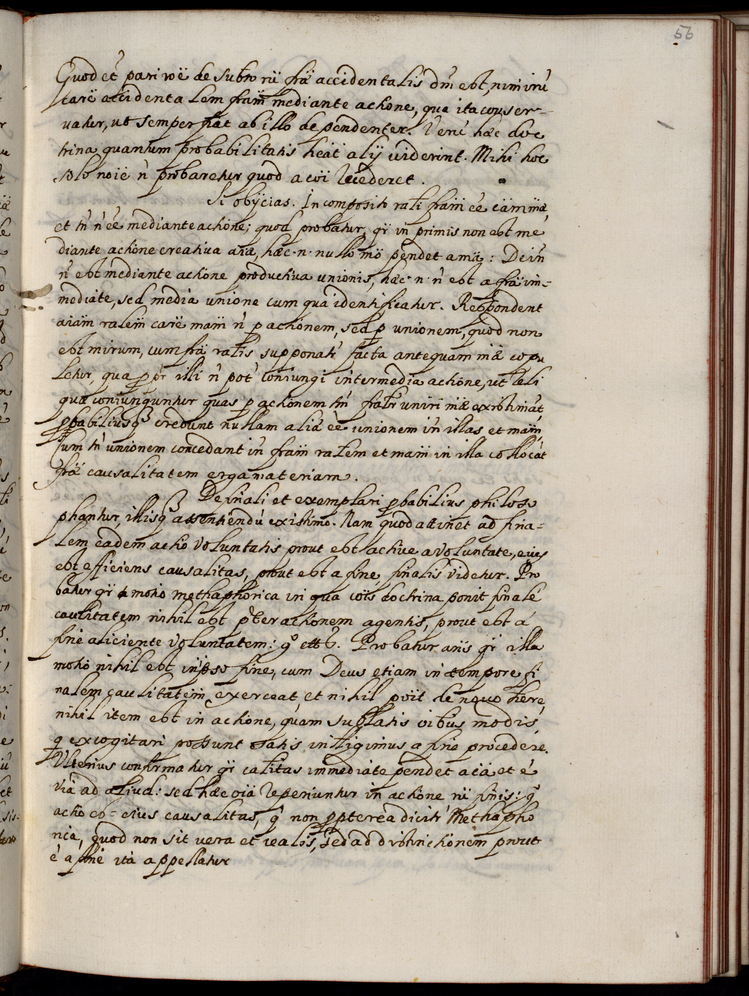 56
Quod et pari roē de subto rū frā accidentalis dm̄ est, nimirū
carē accidentalem fram̄ mediante actione, qua ita conser-
vatur, ut semper fiat ab illo dependenter. Verū hæc doc
trina quantum probabilitatis heāt alij viderint. Mihi hoc
solo noīe n̄ probaretur quod a coī recederet.
Si objicias. In composito ratī fram̄ eē
et tn̄ n̄ eē mediante actione; quod probatur, qr̄ in primis non est me
diante actione creativa aīæ, hæc .n. nullo mō pendet a mā: Dein
n̄ est mediante actione productiva unionis, hæc .n. n̄ est a frā im-
mediate, sed media unione cum qua identificatur. Respondent
aīam ralem carē mam̄ n̄ p actionem, sed p unionem, quod non
est mirum, cum frā ralis supponatr facta antequam mæ copu
letur, qua ppr illi n̄ pot coniungi intermedia actione, ut aliæ
quæ coniunguntur quas p actionem tn̄ mæ existimat
pbabilius credunt nullam aliā eē unionem in illas et mam̄
tn̄ unionem concedant in fram̄ ralem et mam̄ in illa collocāt
frā causalitatem erga materiam.
De finali et exemplari pbabilius philoso
phantur, illisq assentiendū existimo. Nam quod attinet ad fina-
lem eadem actio voluntatis prout est active a voluntate, ejus
est efficiens causalitas, prout est a fine, finalis videtur. Pro
batur qr̄ motio methaphorica in qua coīs doctrina ponit finale
caulitatem nihil est pter actionem agentis, prout est a
fine aliciente voluntatem: gº Probatur añs qr̄ illa
motio nihil est in ipso fine, cum Deus etiam in tempore fi
nalem caulitatem exerceat et nihil poīt de nouo hēre,
nihil item est in actione, quam sublatis oībus modis,
q excogitari possunt satis intligimus a fine procedere.
Ulterius confirmatur qr̄ calitas immediate pendet a cā et ē
via ad aliud: sed hæc oīa reperiuntur in actione rū finis: gº
actio eº ejus causalitas, q non ppterea dicitr Methapho
rica, quod non sit vera et realis, sed ad distinctionem prout
ē a fine ita appellatur